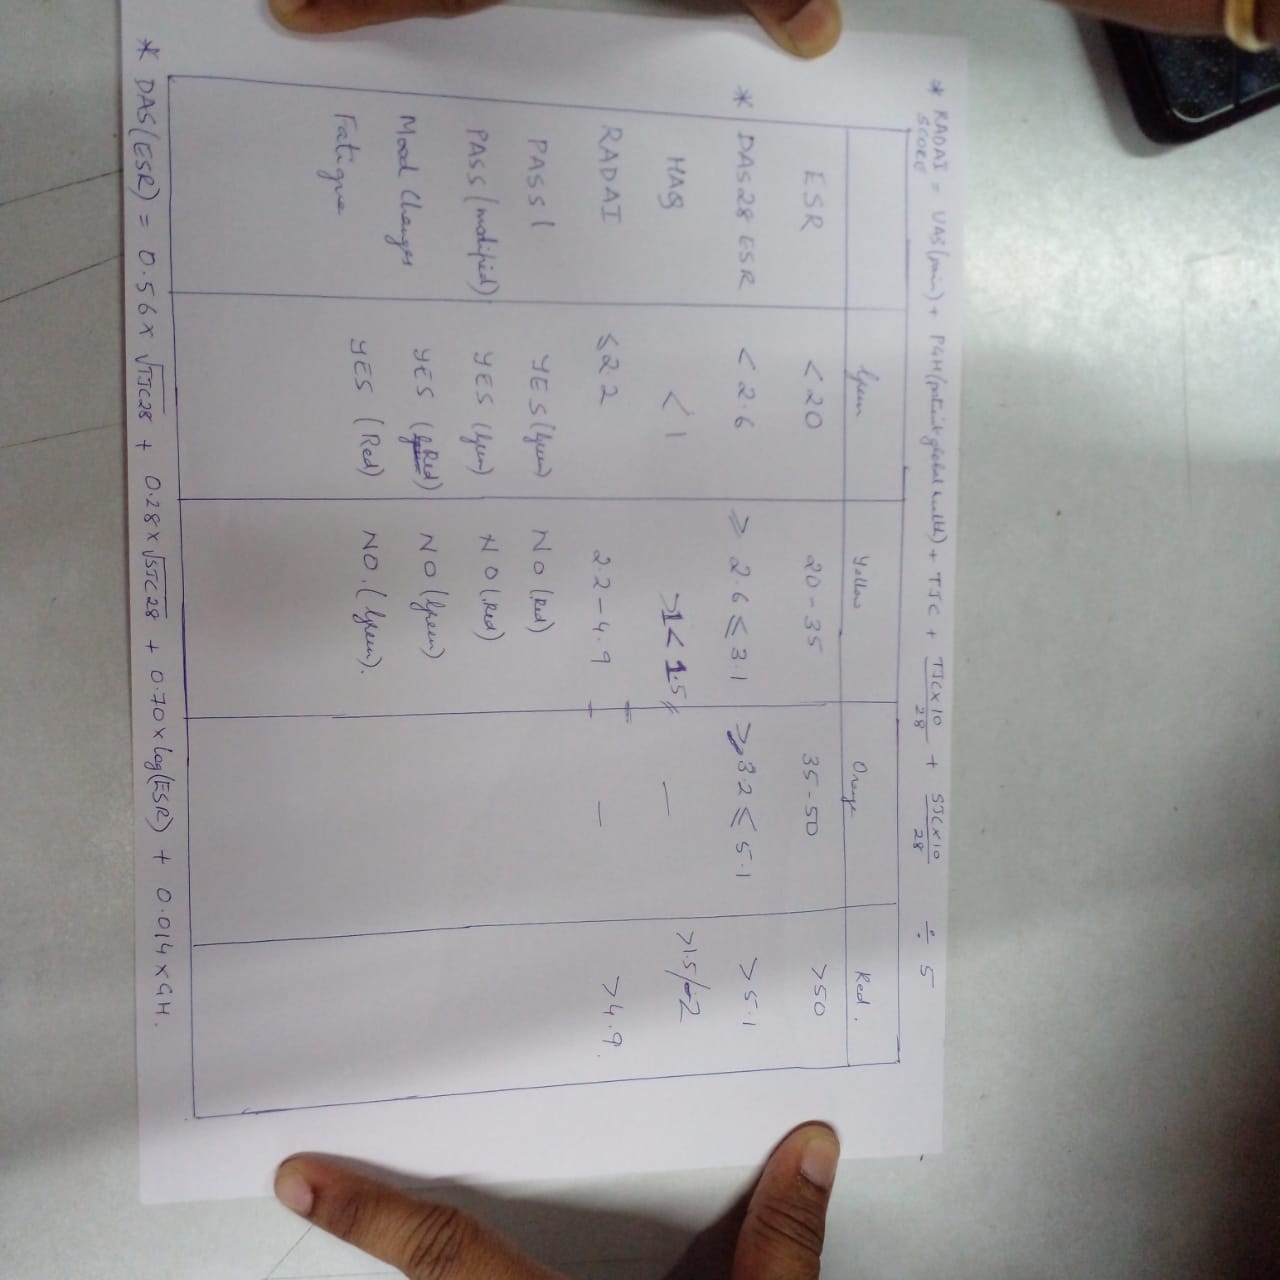 * RADAI SCORE = VAS (pain) + PGH (patient global health) + TJC + TJC x 10 / 28 + SJC x 10 / 28 ÷ 5
Green Yellow Orange Red.
ESR <20 20-35 35-50 >50
* DAS28 ESR <2.6 ≥ 2.6 ≤ 3.1 ≥3.2 ≤ 5.1 >5.1
HAQ <1 >1< 1.5 — >1.5/-2
RADAI ≤2.2 2.2-4.9 — >4.9.
PASS 1 YES (Green) NO (Red)
PASS (modified) YES (Green) NO (Red)
Mood Changes YES (Red) NO (Green)
Fatigue YES (Red) NO. (Green).
* DAS(ESR) = 0.56 x √TJC28 + 0.28 x √SJC28 + 0.70 x log(ESR) + 0.014 x GH.